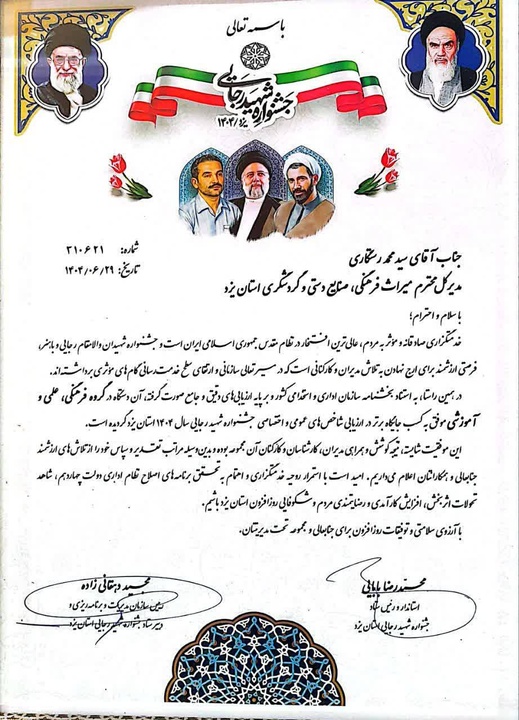 باسمه تعالی
جشنواره شهید رجایی
یزد/۱۴۰۴
شماره: ۳۱۰۶۲۱
تاریخ: ۱۴۰۴/۰۶/۲۹
جناب آقای سید محمد رستگاری
مدیر کل محترم میراث فرهنگی، صنایع دستی و گردشگری استان یزد
با سلام و احترام؛
خدمتگزاری صادقانه و مؤثر به مردم، عالی‌ترین افتخار در نظام مقدس جمهوری اسلامی ایران است و جشنواره شهیدان والامقام رجایی و باهنر،
فرصتی ارزشمند برای ارج نهادن به تلاش مدیران و کارکنانی است که در مسیر تعالی سازمانی و ارتقای سطح خدمت رسانی گام‌های مؤثری برداشته‌اند.
در همین راستا، به استناد بخشنامه سازمان اداری و استخدامی کشور و بر پایه ارزیابی‌های دقیق و جامع صورت گرفته، آن دستگاه در گروه فرهنگی، علمی و
آموزشی موفق به کسب جایگاه برتر در ارزیابی شاخص‌های عمومی و اختصاصی جشنواره شهید رجایی سال ۱۴۰۴ استان یزد گردیده است.
این موفقیت شایسته، نتیجه کوشش و همراهی مدیران، کارشناسان و کارکنان آن مجموعه بوده و بدین وسیله مراتب تقدیر و سپاس خود را از تلاش‌های ارزشمند
جنابعالی و همکارانتان اعلام می‌داریم. امید است با استمرار روحیه خدمتگزاری و اهتمام به تحقق برنامه‌های اصلاح نظام اداری دولت چهاردهم، شاهد
تحولات اثربخش، افزایش کارآمدی و رضایتمندی مردم و شکوفایی روزافزون استان یزد باشیم.
با آرزوی سلامتی و توفیقات روزافزون برای جنابعالی و مجموعه تحت مدیریتتان.
محمدرضا بابایی
استاندار و رئیس ستاد
جشنواره شهید رجایی استان یزد
مجید دهقانی زاده
رئیس سازمان مدیریت و برنامه ریزی و
دبیر ستاد جشنواره شهید رجایی استان یزد